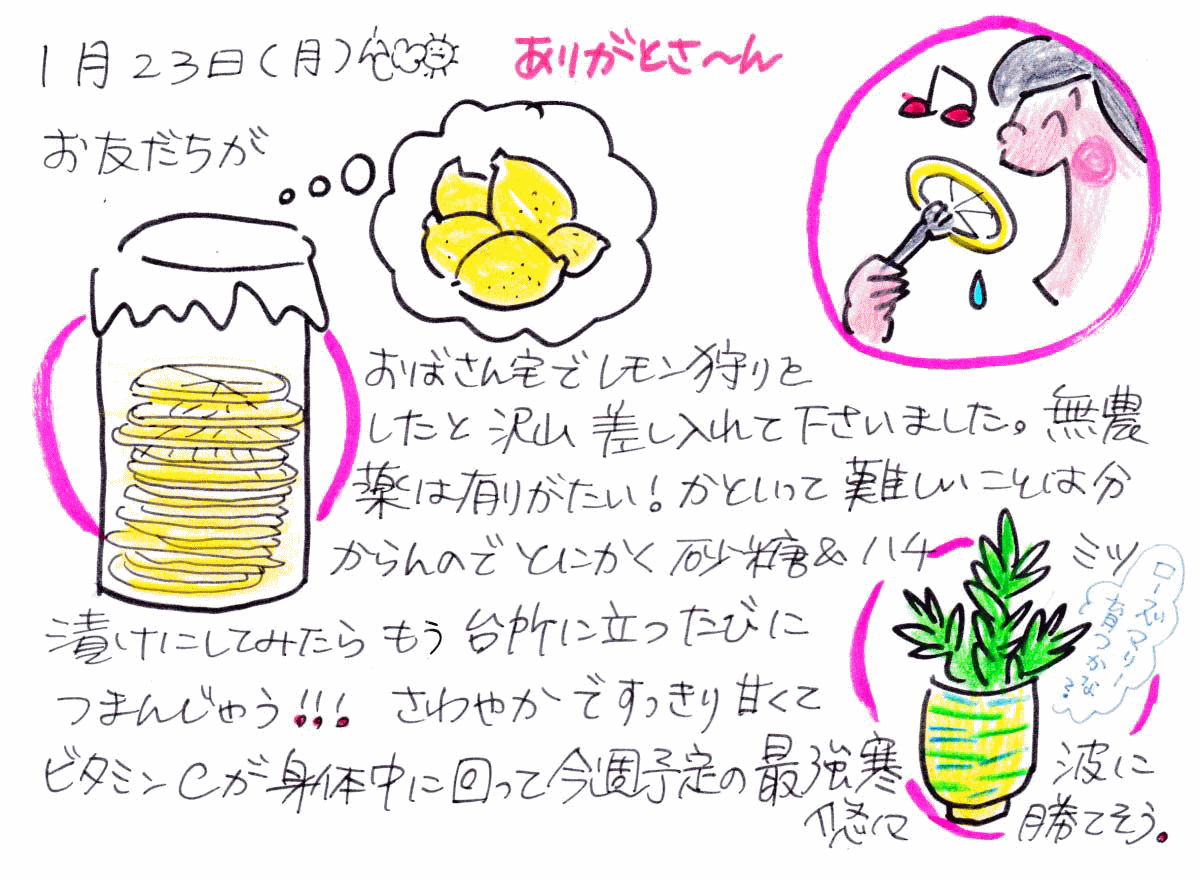 1月23日(月)
ありがとさ～ん
お友だちが
おばさん宅でレモン狩りを
したと沢山差し入れて下さいました。無農
薬は有りがたい!かといって難しいことは分
からんのでとにかく砂糖&ハチミツ
漬けにしてみたらもう台所に立ったびに
つまんじゃう!!!さわやかですっきり甘くて
ビタミンCが身体中に回って今週予定の最強寒波に
悠々勝てそう。
ローズマリー
育つかな